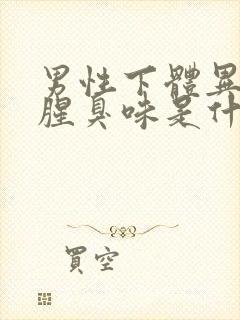 男性下體異
腥臭味是什
買空